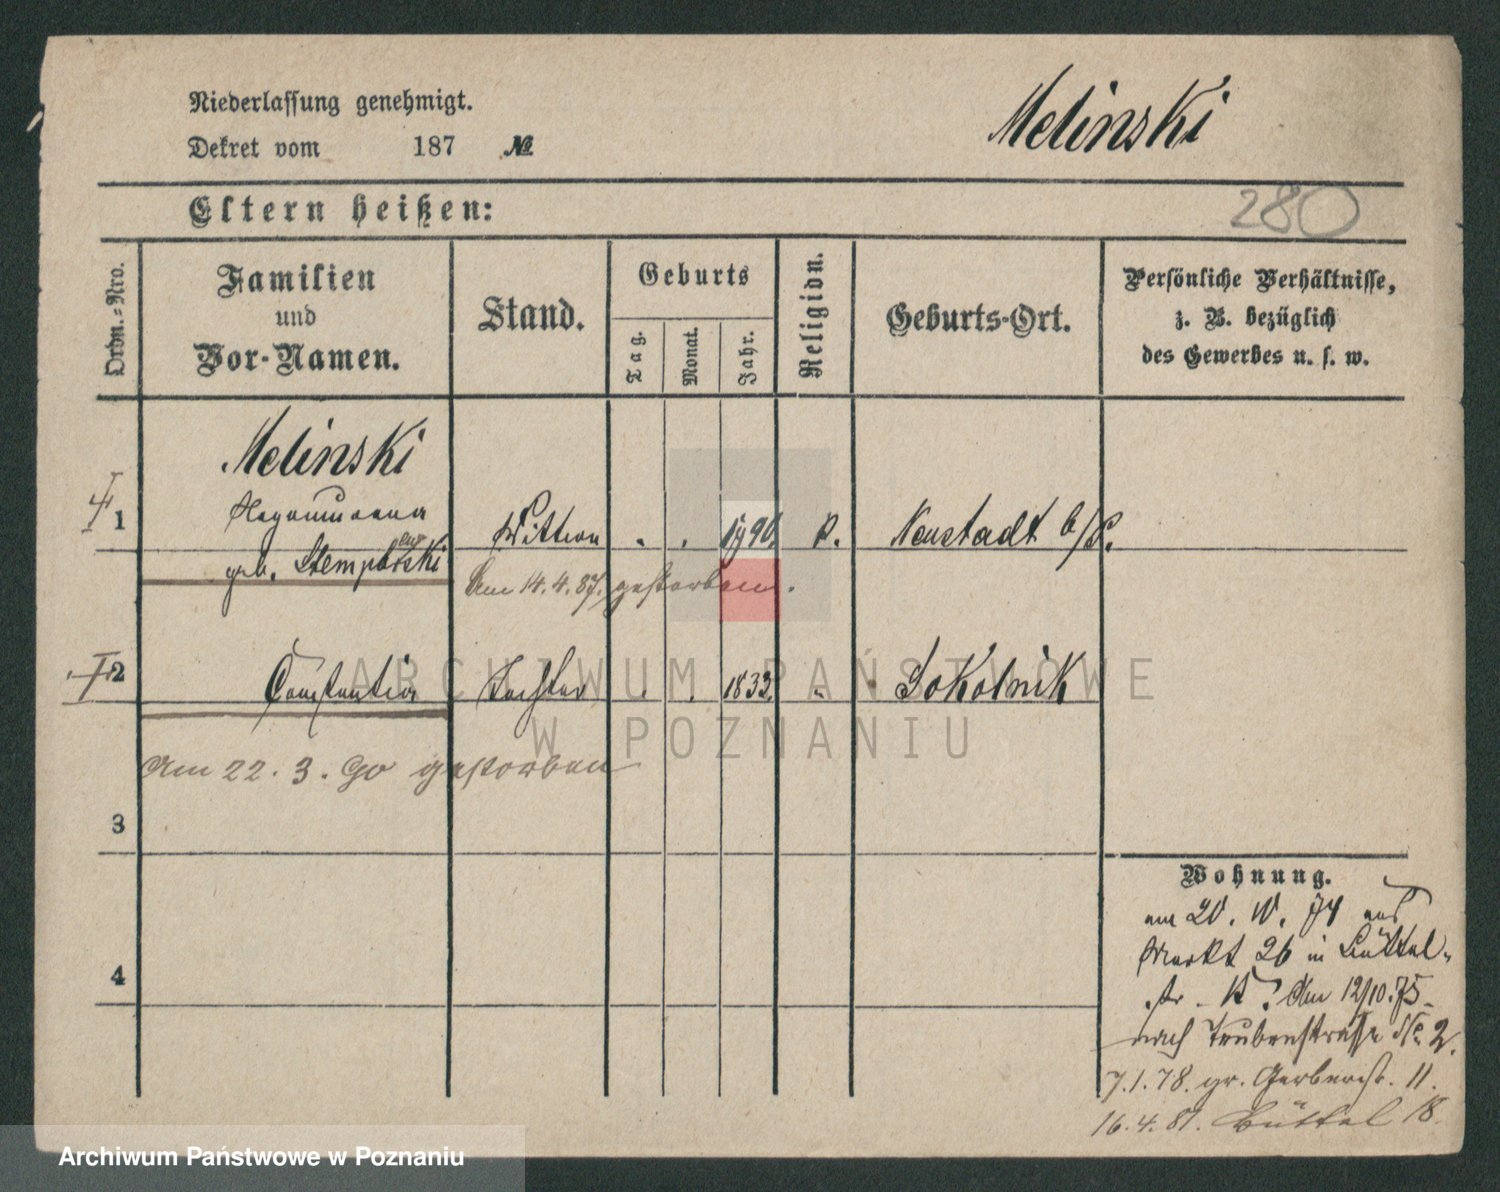 Niederlassung genehmigt.
Dekret vom 187 №
Melinski
280
Eltern heißen:
Ordn.-Nro.
Familien
und
Vor-Namen.
Stand.
Geburts
Tag.
Monat.
Jahr.
Religion.
Geburts-Ort.
Persönliche Verhältnisse,
z. B. bezüglich
des Gewerbes u. s. w.
Melinski
1
geb.
Wittwe
1790.
k.
Neustadt b/P.
Am 14.4.87. gestorben.
2 Constantia Tochter 1833. " Sokolnik
Am 22.3.90 gestorben
3
4
Wohnung.
am 20. IV. 74 aus
Markt 26 in Büttel-
str. Am 12/10.75
nach Taubenstrasse No. 2.
7.1.78. gr. Gerberstr. 11.
16.4.81. Büttel 18.
ARCHIWUM PAŃSTWOWE
W POZNANIU
Archiwum Państwowe w Poznaniu